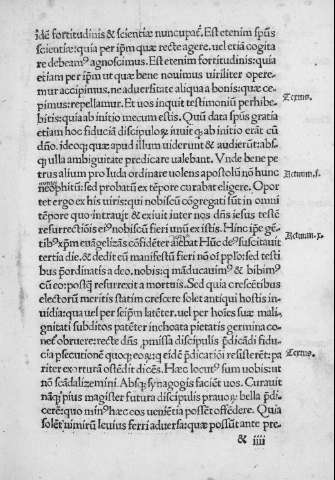 idẽ fortitudinis & scientiæ nuncupat᷑. Est etenim spũs
scientiæ: quia per ip̃m quæ recte agere. uel etiã cogita
re debeam⁹ agnoscimus. Est etenim fortitudinis: quia
etiam per ip̃m ut quæ bene novimus viriliter opere-
mur accipimus. ne aduersitate aliqua a bonis: quæ ce-
pimus: repellamur. Et uos inquit testimoniũ perhibe-
bitis: quia ab initio mecum estis. Quũ data spũs gratia
etiam hoc fiduciã discipuloꝝ iuuit ꝙ ab initio erãt cũ
dño. ideoqꝫ quæ apud illum uiderunt & audierũt: abs
qꝫ ulla ambiguitate predicare ualebant. Vnde bene pe
trus alium pro Iuda ordinare uolens apostolũ nõ hunc
neophitũ: sed probatũ ex tẽpore curabat eligere. Opor
tet ergo ex his uiris: qui nobiscũ cõgregati sũt in omni
tẽpore quo intrauit & exiuit inter nos dñs iesus testẽ
resurrectiõis ei⁹ nobiscũ fieri unũ ex istis. Hinc ip̃e gẽ-
tib⁹ xp̃m euãgelizãs cõfidẽter aiebat Hũc de⁹ suscitauit
tertia die. & dedit eũ manifestũ fieri nõ oĩ pplo: sed testi
bus p̃ordinatis a deo. nobis: q̃ mãducauim⁹ & bibim⁹
cũ eo: postqꝫ resurrexit a mortuis. Sed quia crescẽtibus
electorũ meritis statim crescere solet antiqui hostis in-
uidia: qua uel per seip̃m latẽter. uel per hoĩes suæ mali
gnitati subditos patẽter inchoata pietatis germina co-
net᷑ obruere: recte dñs p̃missa discipulis p̃dicãdi fidu-
cia p̃secutionẽ quoqꝫ eoꝝ: q eidẽ p̃dicatiõi resisterẽt: pa
riter exorturã ostẽdit dicẽs. Hæc locut⁹ sum uobis: ut
nõ scãdalizemini. Absqꝫ synagogis faciẽt uos. Curauit
nãqꝫ pius magister futura discipulis prauoꝝ bella p̃di
cere: quo min⁹ hæc eos ueniẽtia possẽt offẽdere. Quia
solẽt nimirũ leuius ferri aduersa: quæ possũt ante pre-
& iiii
Textus.
Actuum .i.
Actuum .x.
Textus.